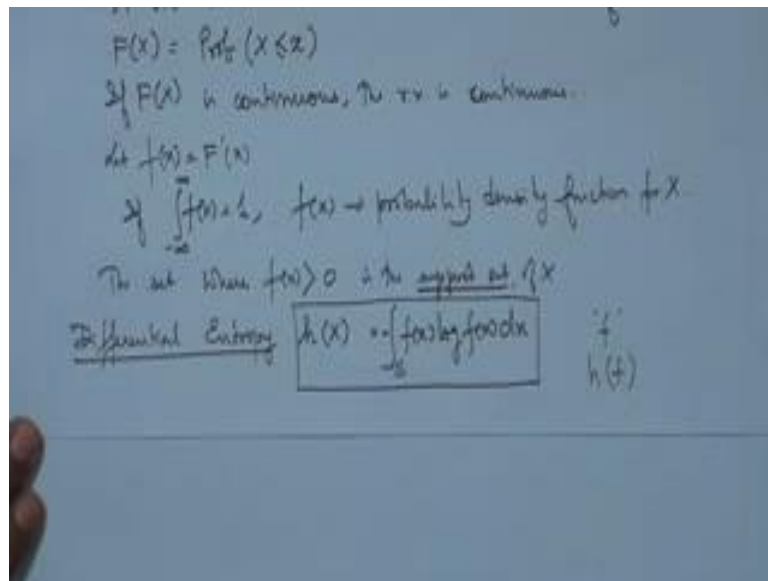 F(x) = Prob (X ≤ x)
If F(x) is continuous, the rv is continuous.
Let f(x) = F'(x)
If ∫_{-∞}^{∞} f(x) = 1, f(x) → probability density function for X
The set where f(x) > 0 is the support set of X
Differential Entropy h(X) = -∫_S f(x) log f(x) dx 'f'
h(f)